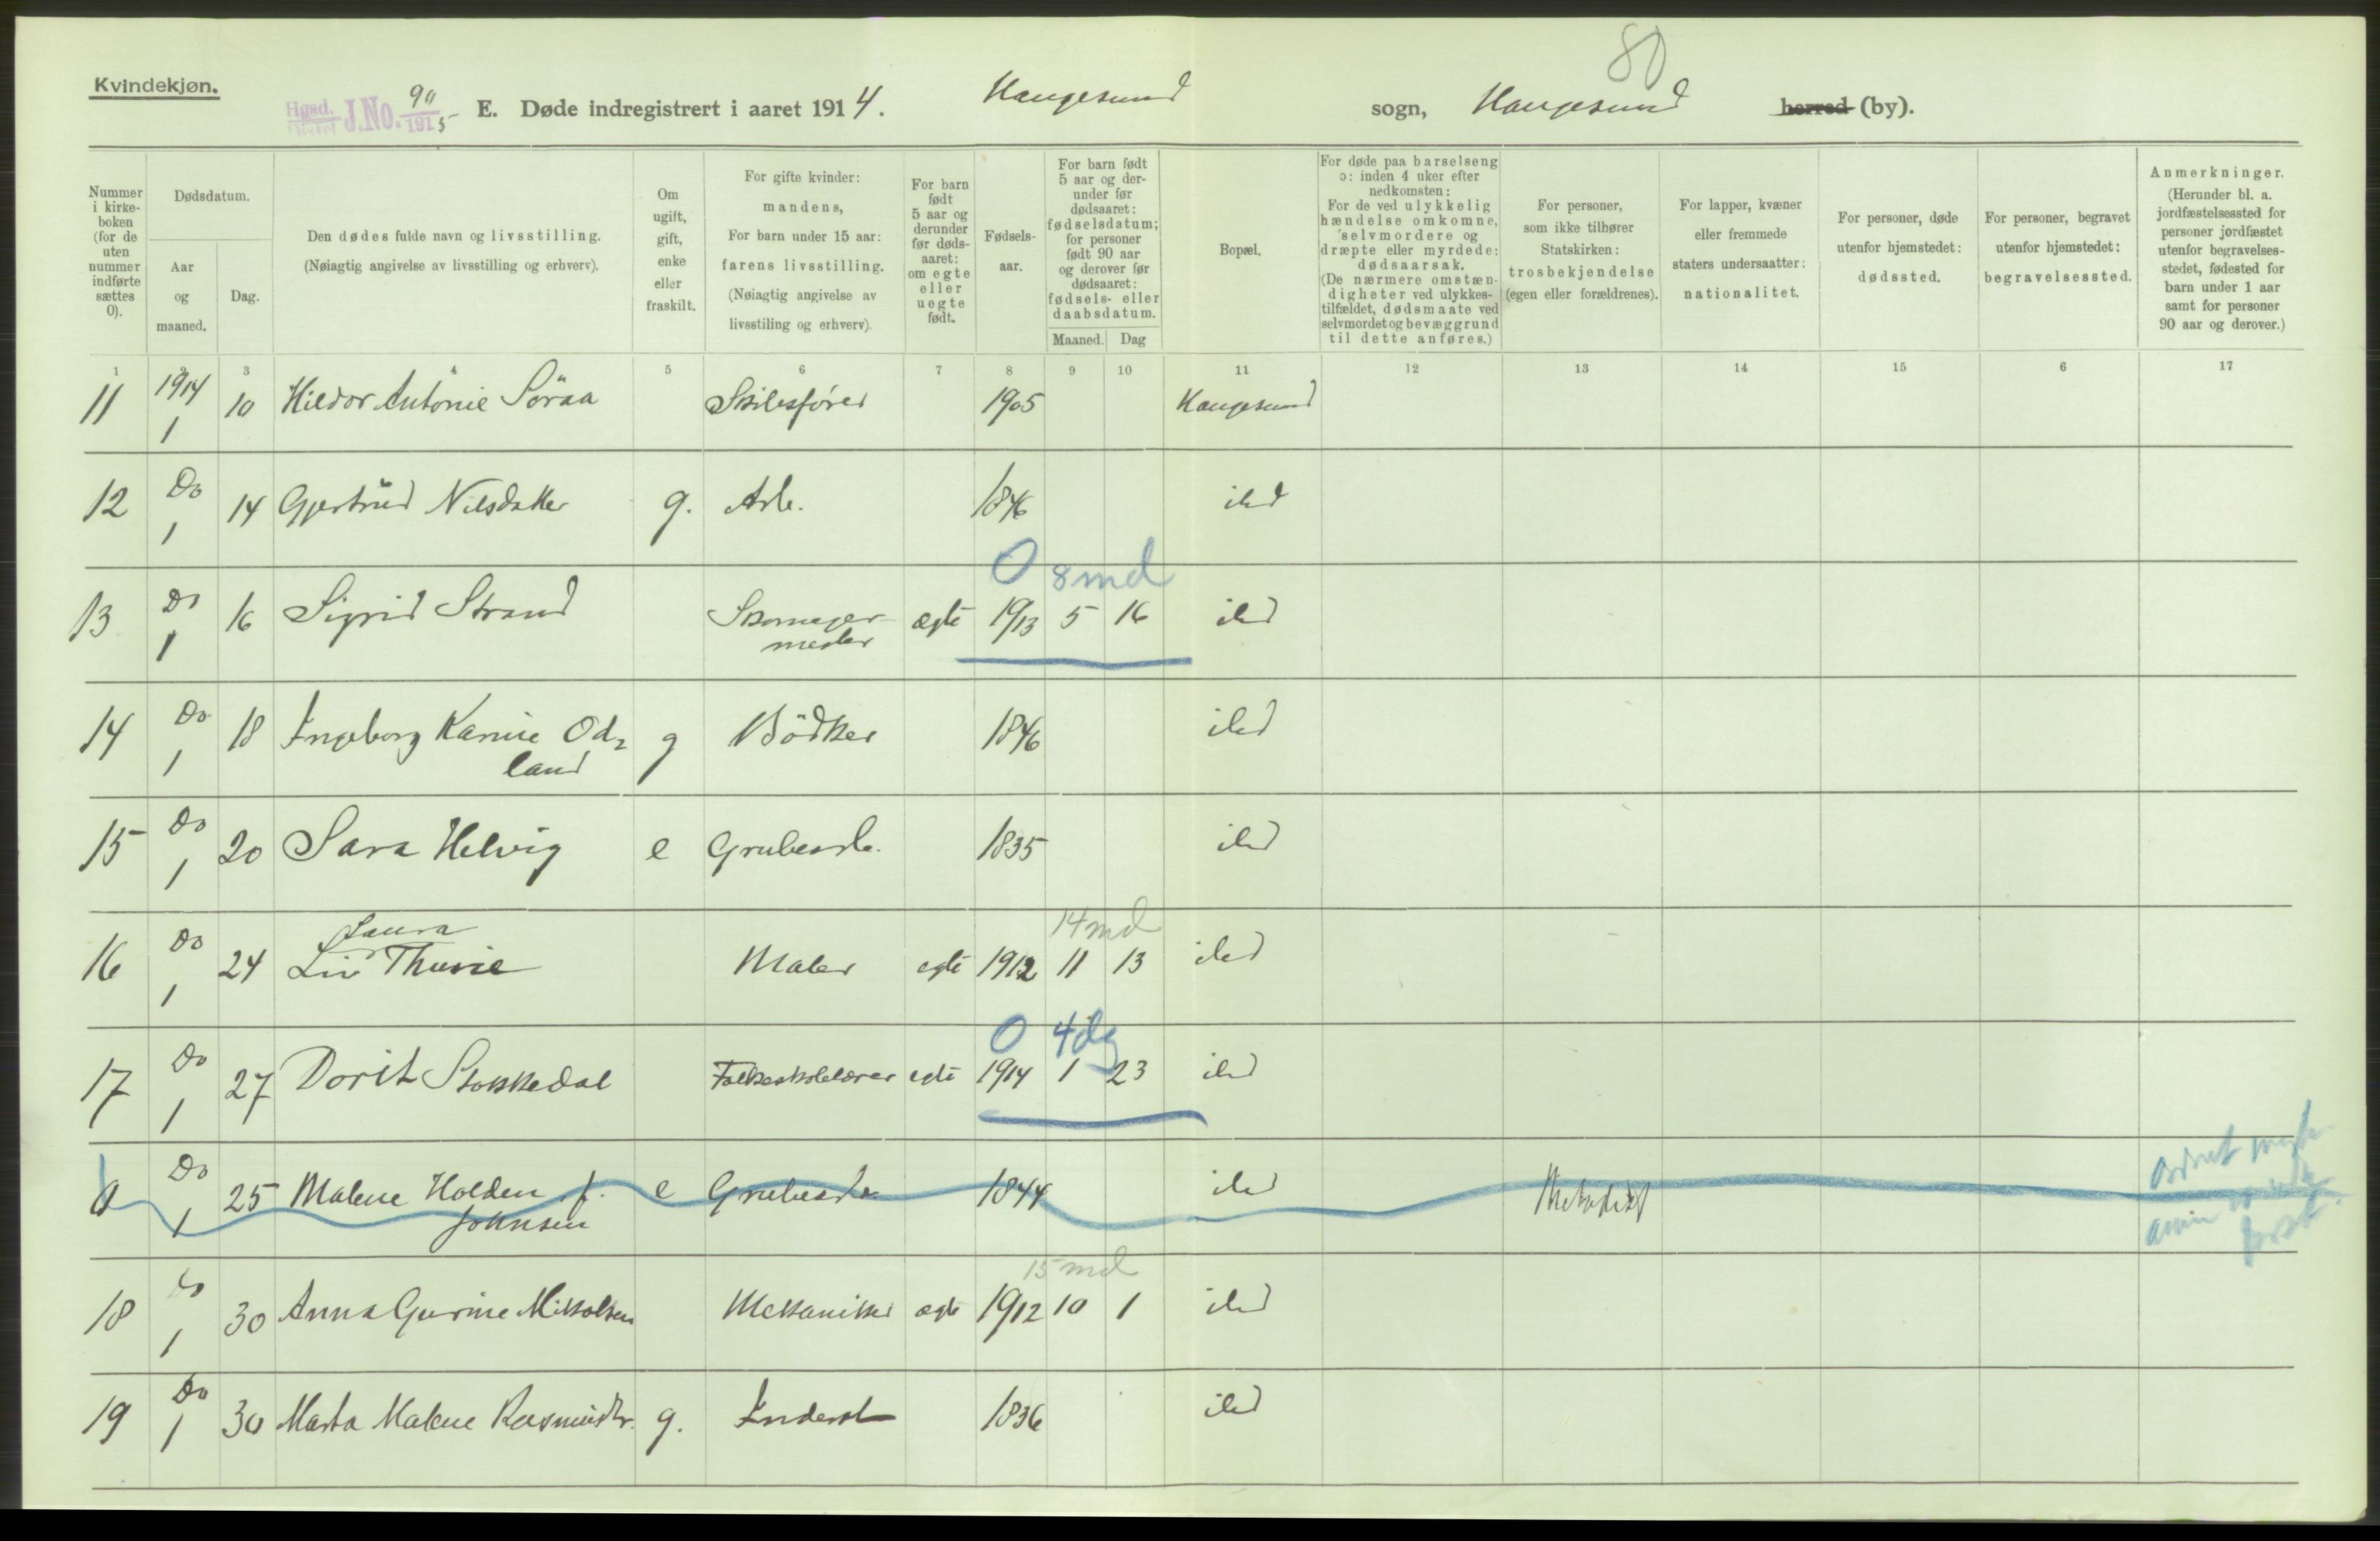 80
Kvindekjøn.
Hgsd. Distrikt J.No. 90/1915 E. Døde indregistrert i aaret 1914. Haugesund sogn, Haugesund herred (by).
Nummer i kirke- boken (for de uten nummer indførte sættes 0).
Dødsdatum.
Aar og maaned.
Dag.
Den dødes fulde navn og livsstilling.
(Nøiagtig angivelse av livsstilling og erhverv).
Om ugift, gift, enke eller fraskilt.
For gifte kvinder: mandens,
For barn under 15 aar: farens livsstilling.
(Nøiagtig angivelse av livsstiling og erhverv).
For barn født 5 aar og derunder før døds- aaret: om egte eller uegte født.
Fødsels- aar.
For barn født 5 aar og der- under før dødsaaret: fødselsdatum; for personer født 90 aar og derover før dødsaaret: fødsels- eller daabsdatum.
Maaned. Dag
Bopæl.
For døde paa barselseng ɔ: inden 4 uker efter nedkomsten:
For de ved ulykkelig hændelse omkomne, selvmordere og dræpte eller myrdede: dødsaarsak.
(De nærmere omstæn- digheter ved ulykkes- tilfældet, dødsmaate ved selvmordet og bevæggrund til dette anføres.)
For personer, som ikke tilhører Statskirken: trosbekjendelse (egen eller forældrenes).
For lapper, kvæner eller fremmede staters undersaatter: nationalitet.
For personer, døde utenfor hjemstedet: dødssted.
For personer, begravet utenfor hjemstedet: begravelsessted.
Anmerkninger.
(Herunder bl. a. jordfæstelsessted for personer jordfæstet utenfor begravelses- stedet, fødested for barn under 1 aar samt for personer 90 aar og derover.)
1 3 4 5 6 7 8 9 10 11 12 13 14 15 6 17
11 1914 1 10 Hildor Antonie Söraa Skibsfører 1905 Haugesund
12 Do 1 14 Gjertrud Nilsdatter g. Arb. 1846 ibd
0 8 md
13 Do 1 16 Sigrid Strand Skomager- mester ægte 1913 5 16 ibd
14 Do 1 18 Ingeborg Karine Od- land g Bödker 1846 ibd
15 Do 1 20 Sara Helvig e Grubearb. 1835 ibd
14 md
16 Do 1 24 Liv Laura Thuvie Maler egte 1912 11 13 ibd
0 4 dg
17 Do 1 27 Dorit Stokkedal Folkeskolelærer egte 1914 1 23 ibd
0 Do 1 25 Malene Holden f. Johnsen e Grubearb 1844 ibd Methodist
15 md
18 do 1 30 Anna Gurine Mikkolsen Mekaniker ægte 1912 10 1 ibd
19 Do 1 30 Marta Malene Rasmusdtr. g. Inderst 1836 ibd